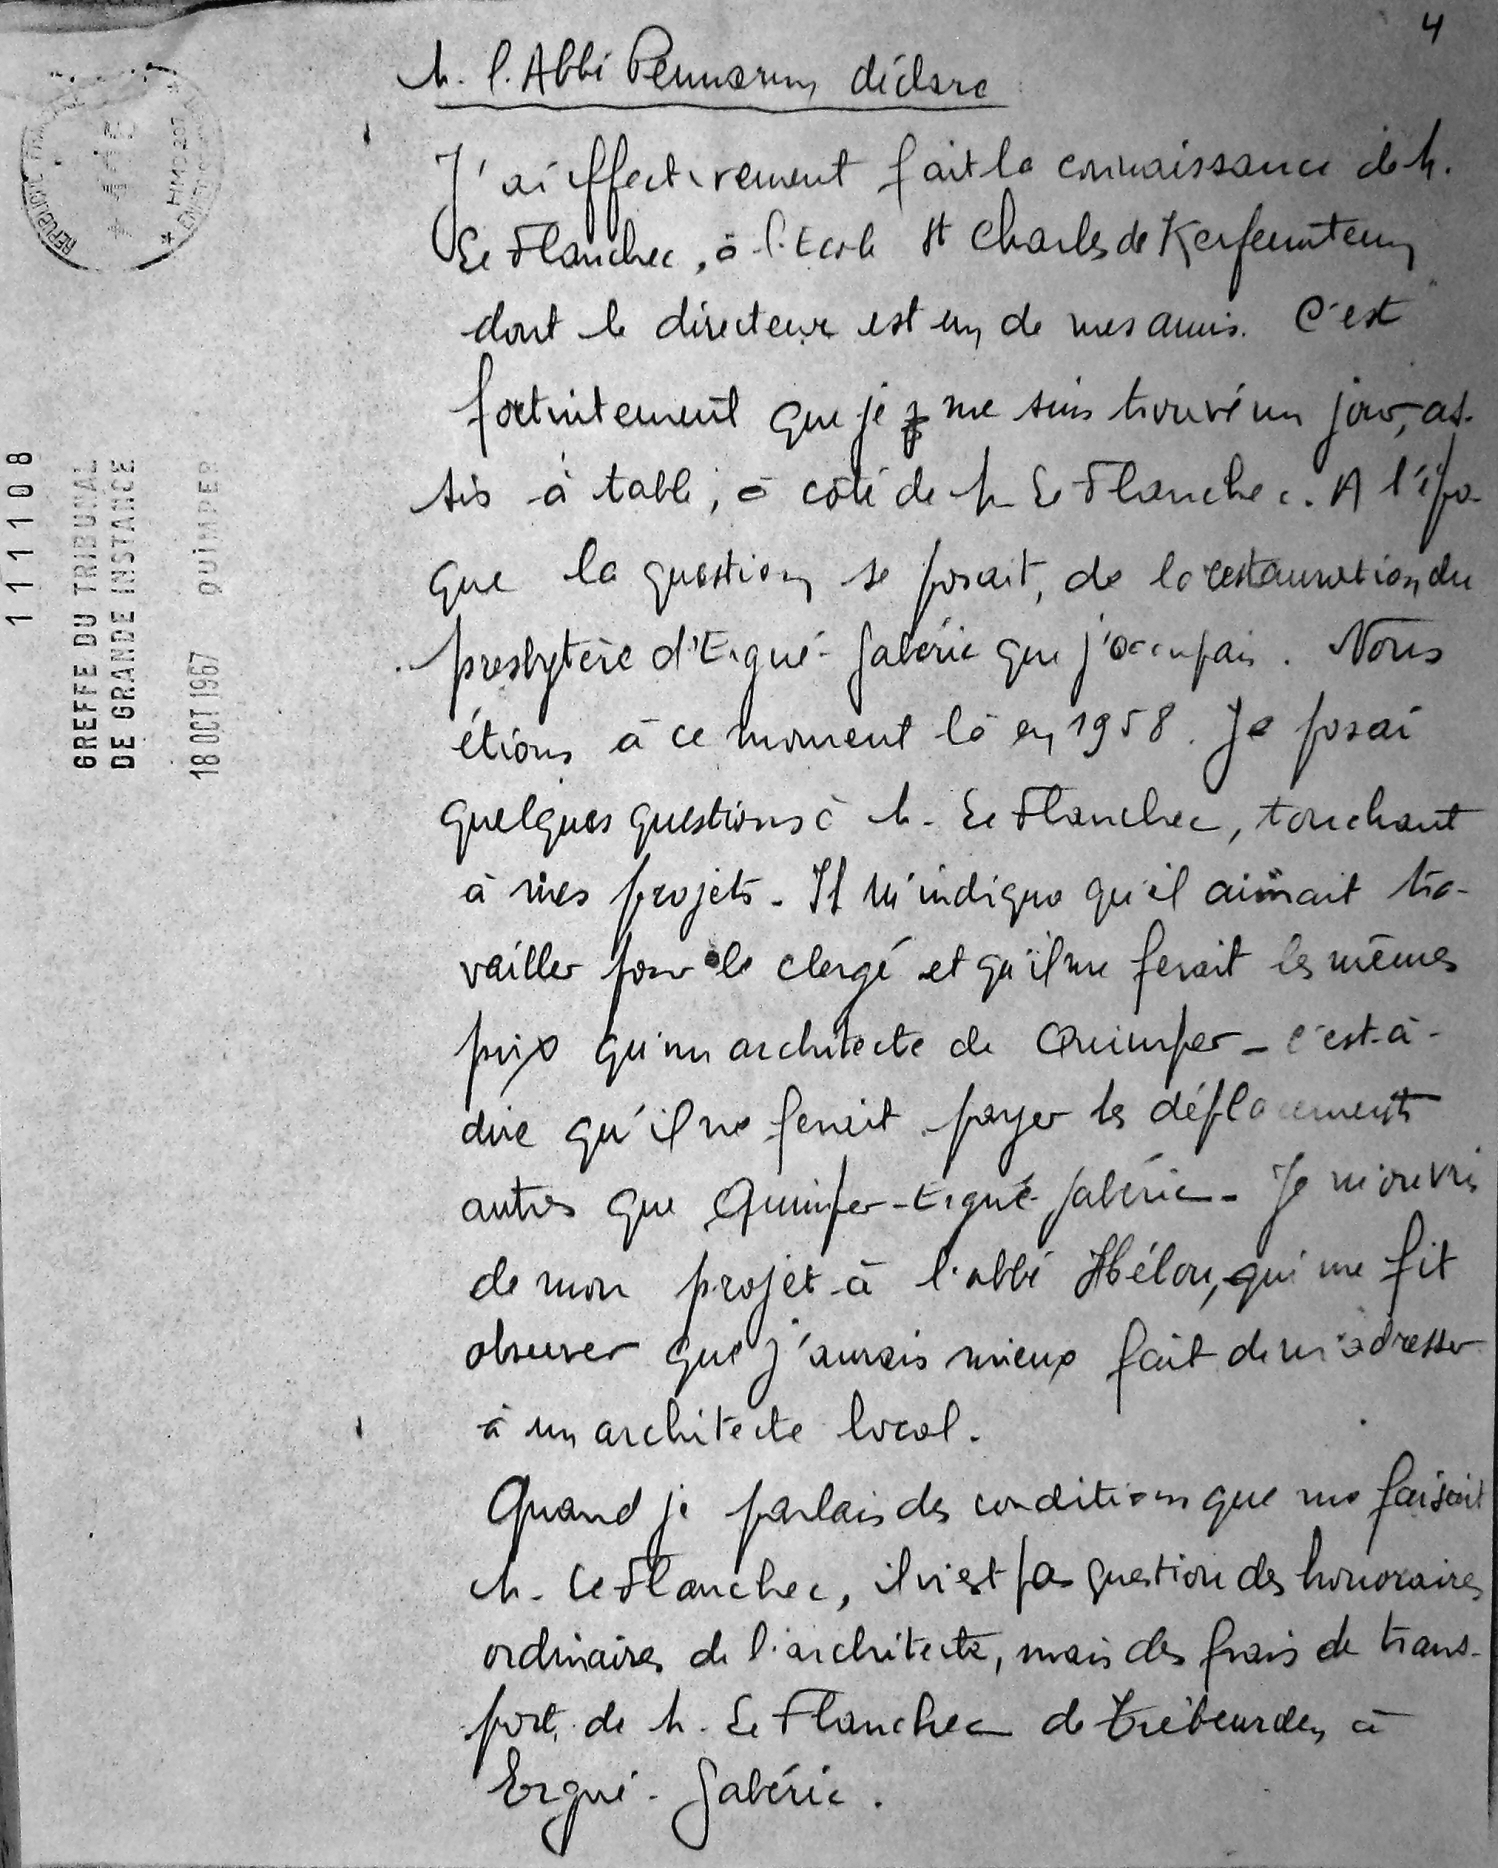 4
M. l'Abbé Pennarun déclare
J'ai effectivement fait la connaissance de M.
Le Flanchec, à l'Ecole St Charles de Kerfeunteun
dont le directeur est un de mes amis. C'est
fortuitement que je me suis trouvé un jour, as-
sis à table, à côté de M Le Flanchec. A l'épo-
que la question se posait, de la restauration du
presbytère d'Ergué-Gabéric que j'occupais. Nous
étions à ce moment là en 1958. Je posai
quelques questions à M. Le Flanchec, touchant
à mes projets. Il m'indiqua qu'il aimait tra-
vailler pour le clergé et qu'il me ferait les mêmes
prix qu'un architecte de Quimper - c'est-à-
dire qu'il me ferait payer les déplacements
autres que Quimper-Ergué-Gabéric - Je m'ouvris
de mon projet à l'abbé Hélou, qui me fit
observer que j'aurais mieux fait de m'adresser
à un architecte local.
Quand je parlais des conditions que me faisait
M. Le Flanchec, il n'est pas question des honoraires
ordinaires de l'architecte, mais des frais de trans-
port, de M. Le Flanchec de Trébeurden à
Ergué-Gabéric.
111108
GREFFE DU TRIBUNAL
DE GRANDE INSTANCE
18 OCT 1967 QUIMPER
REPUBLIQUE